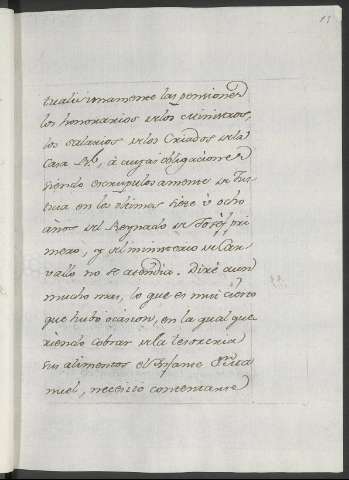 13
tualissimamente las pensiones
los honorarios de los Ministros,
los salarios de los Criados de la
Casa Rl, à cuyas obligaciones
siendo escrupulosamente de Jus-
ticia en los ultimos siete ù ocho
años del Reynado de Josef pri-
mero, y del ministerio de Car-
vallo no se atendia. Diré aun
mucho mas, lo que es mui cierto
que hubo ocasion, en la qual que-
riendo cobrar de la tesoreria
sus alimentos el Infante Dn Ma-
nuel, necesitó contentarse